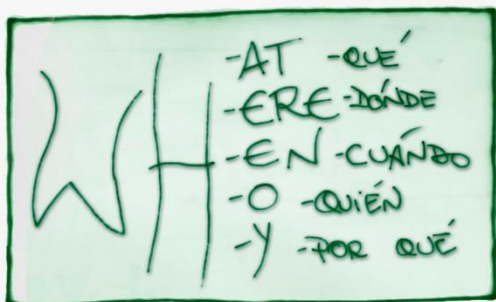 WH
-AT -QUÉ
-ERE-DÓNDE
-EN -CUÁNDO
-O -QUIÉN
-Y -POR QUÉ